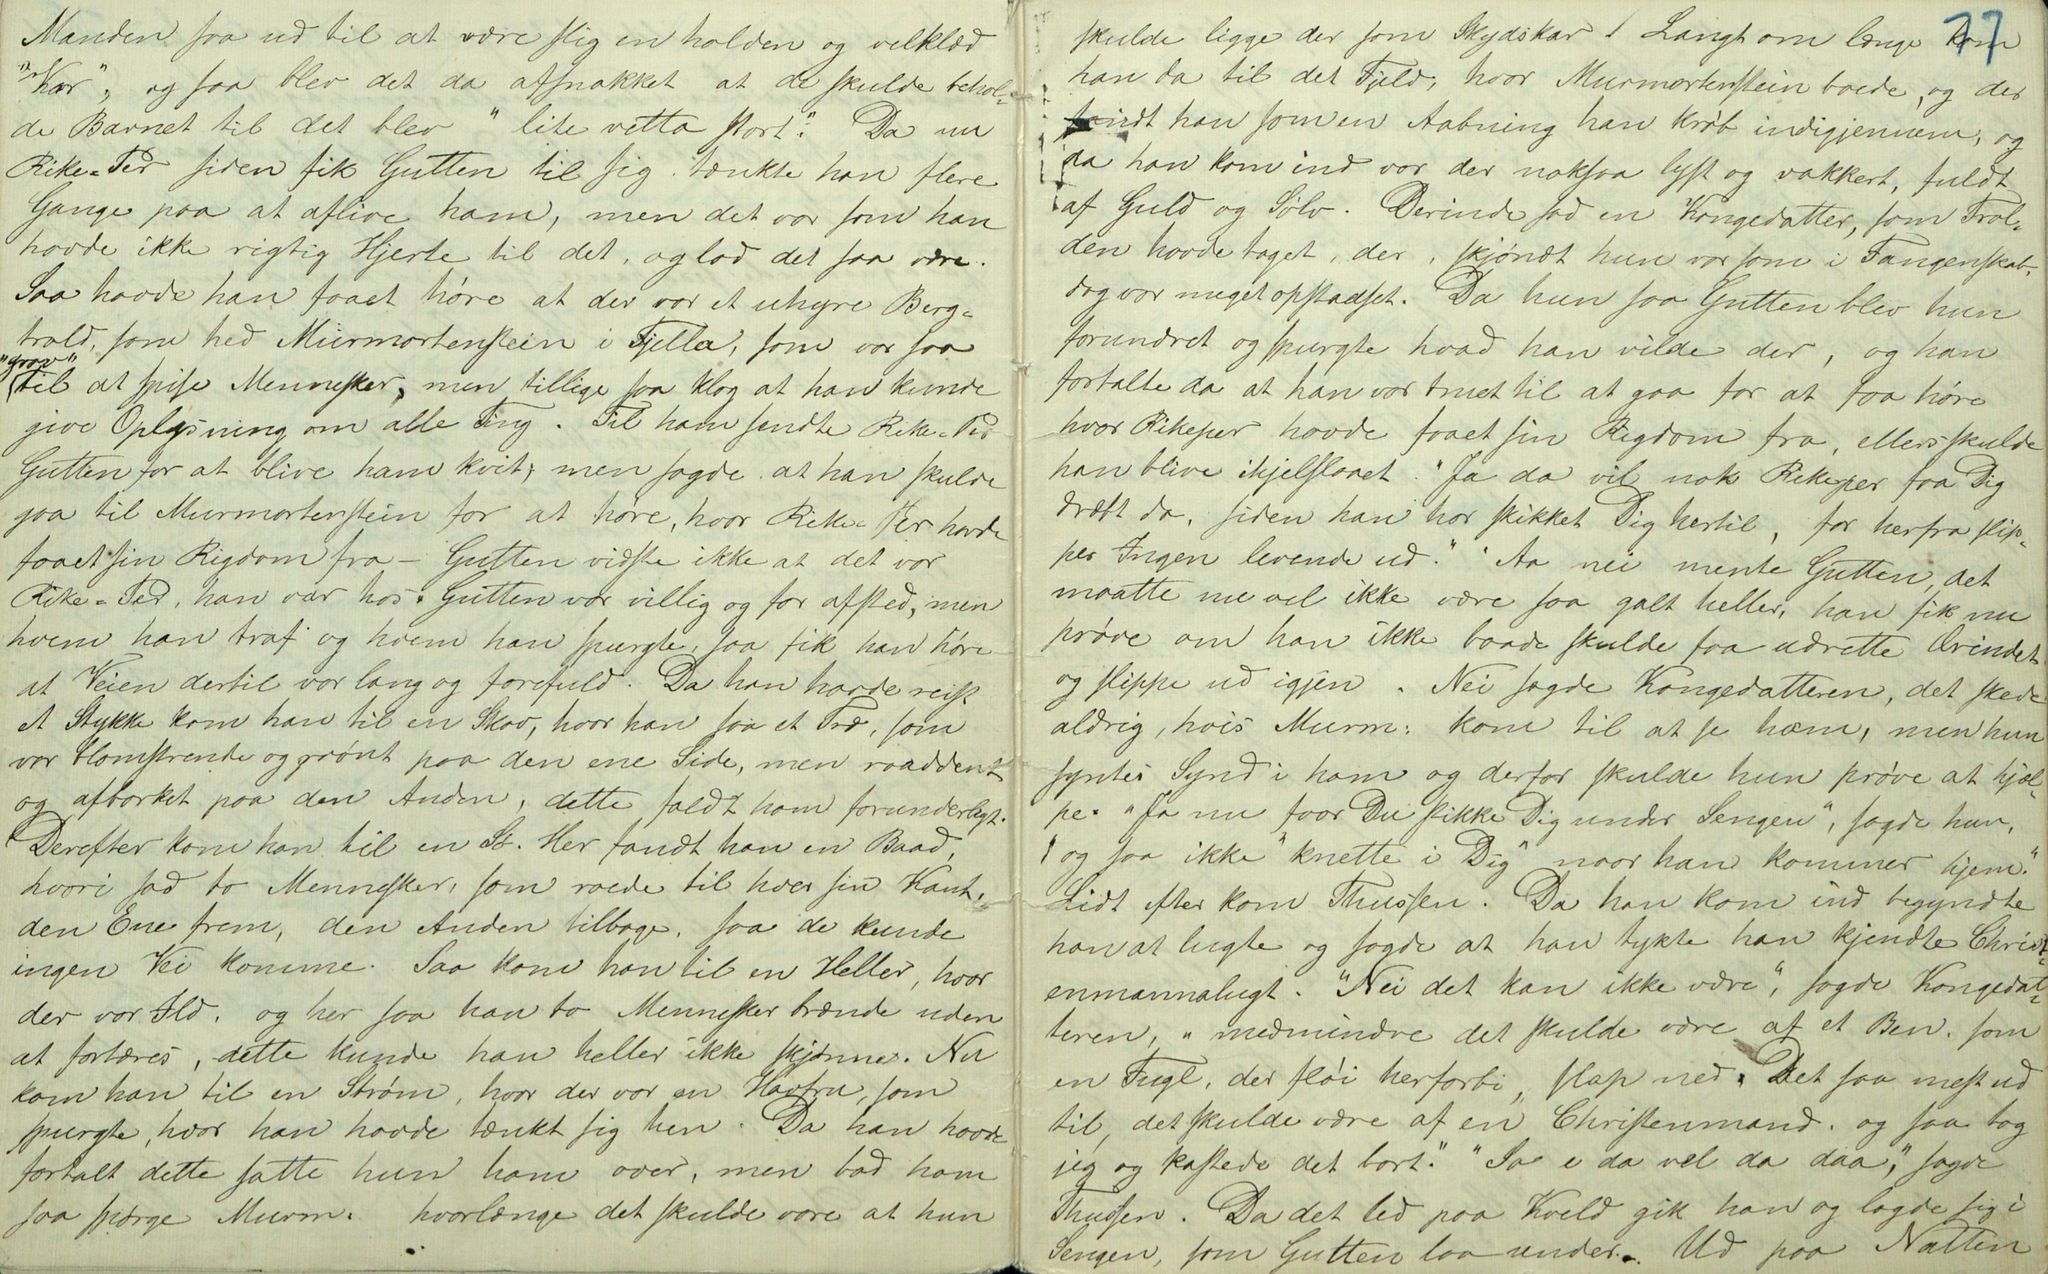 Manden saa ud til at være slig en holden og velklæd
"Kar", og saa blev det da afsnakket at de skulde behol-
de Barnet til det blev "lite vetta stort". Da nu
Rike-Per siden fik Gutten til sig tænkte han flere
Gange paa at aflive ham, men det var som han
havde ikke rigtig Hjerte til det, og lod det saa være.
Saa havde han faaet høre at der var et uhyre Berg-
trold, som hed Murmortenstein i Fjella, som var saa
"grov"
til at spise Mennesker, men tillige saa klog at han kunde
give Oplysning om alle Ting. Til ham sendte Rike-Per
Gutten for at blive ham kvit, men sagde at han skulde
gaa til Murmortenstein for at høre, hvor Rike-Per havde
faaet sin Rigdom fra – Gutten vidste ikke at det var
Rike-Per, han var hos. Gutten var villig og for afsted, men
hvem han traf og hvem han spurgte, saa fik han høre
at Veien dertil var lang og farefuld. Da han havde reist
et Stykke kom han til en Skov, hvor han saa et Træ, som
var blomstrende og grønt paa den ene Side, men raaddent
og afbarket paa den Anden, dette faldt ham forunderligt.
Derefter kom han til en St. Her fandt han en Baad,
hvori sad to Mennesker, som roede til hver sin Kant,
den Ene frem, den Anden tilbage, saa de kunde
ingen Vei komme. Saa kom han til en Heller, hvor
der var Ild, og her saa han to Mennesker brænde uden
at fortæres, dette kunde han heller ikke skjønne. Nu
kom han til en Strøm, hvor der var en Havfru, som
spurgte, hvor han havde tænkt sig hen. Da han havde
fortalt dette satte hun ham over, men bad ham
saa spørge Murm. hvorlænge det skulde vare at hun
77
skulde ligge der som Skydskar. Langt om længe kom
han da til det Fjeld, hvor Murmortenstein boede, og der
fandt han som en Aabning han krøb indigjennem, og
da han kom ind var der noksaa lyst og vakkert, fuldt
af Guld og Sølv. Derinde sad en Kongedatter, som Trol-
den havde taget, der, skjøndt hun var som i Fangenskab,
dog var meget opstadset. Da hun saa Gutten blev hun
forundret og spurgte hvad han vilde der, og han
fortalte da at han var truet til at gaa for at faa høre
hvor Rikeper havde faaet sin Rigdom fra, ellers skulde
han blive ihjelslaaet. "Ja da vil nok Rikeper faa Dig
dræbt da, siden han har skikket Dig hertil, for herfra slip-
per Ingen levende ud." Aa nei mente Gutten, det
maatte nu vel ikke være saa galt heller, han fik nu
prøve om han ikke baade skulde faa udrette Ærindet
og slippe ud igjen. Nei sagde Kongedatteren, det skede
aldrig, hvis Murm: kom til at se ham, men hun
syntes Synd i ham og derfor skulde hun prøve at hjæl-
pe. "Ja nu faar Du stikke Dig under Sengen", sagde hun,
og saa ikke "knette i Dig" naar han kommer hjem."
Lidt efter kom Thussen. Da han kom ind begyndte
han at lugte og sagde at han tykte han kjendte Christ-
enmannalugt. "Nei det kan ikke være", sagde Kongedat-
teren, "medmindre det skulde være af et Ben, som
en Fugl, der fløi herforbi, slap ned. Det saa mest ud
til, det skulde være af en Christenmand, og saa tog
jeg og kastede det bort." "Sa e da vel da daa," sagde
Thussen. Da det led paa Kveld gik han og lagde sig i
Sengen, som Gutten laa under. Ud paa Natten